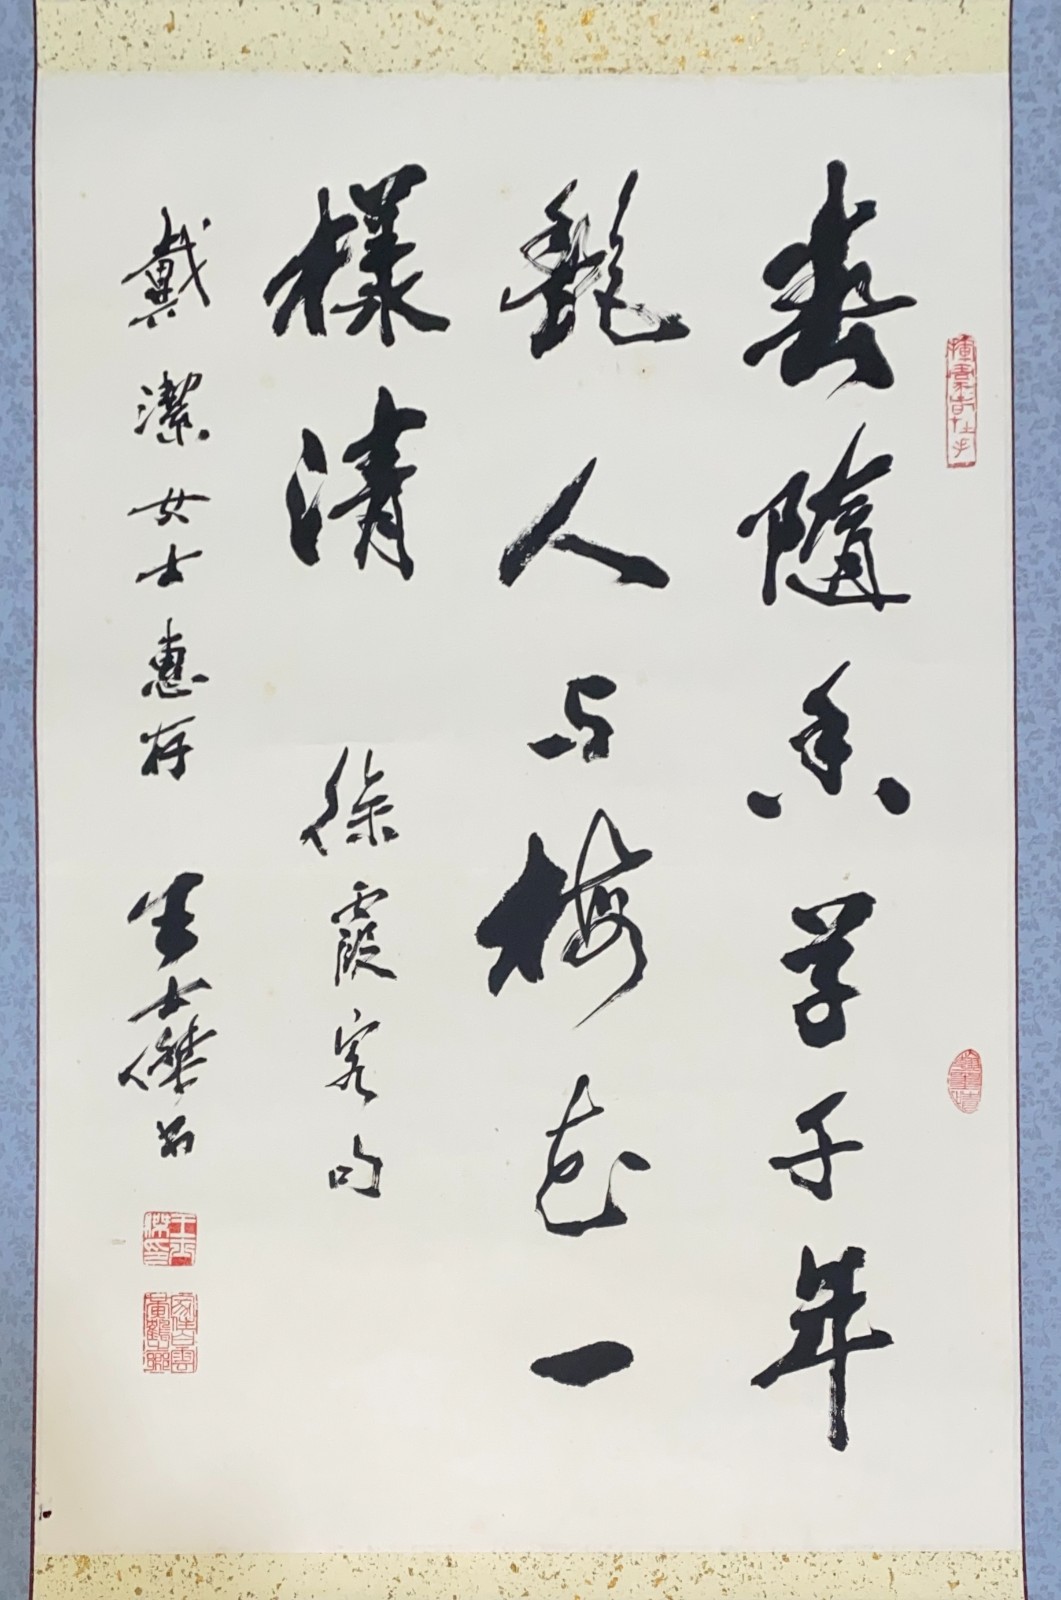 春随香草千年
艷人与梅花一
樣清
徐霞客句
戴潔女士惠存
王士傑